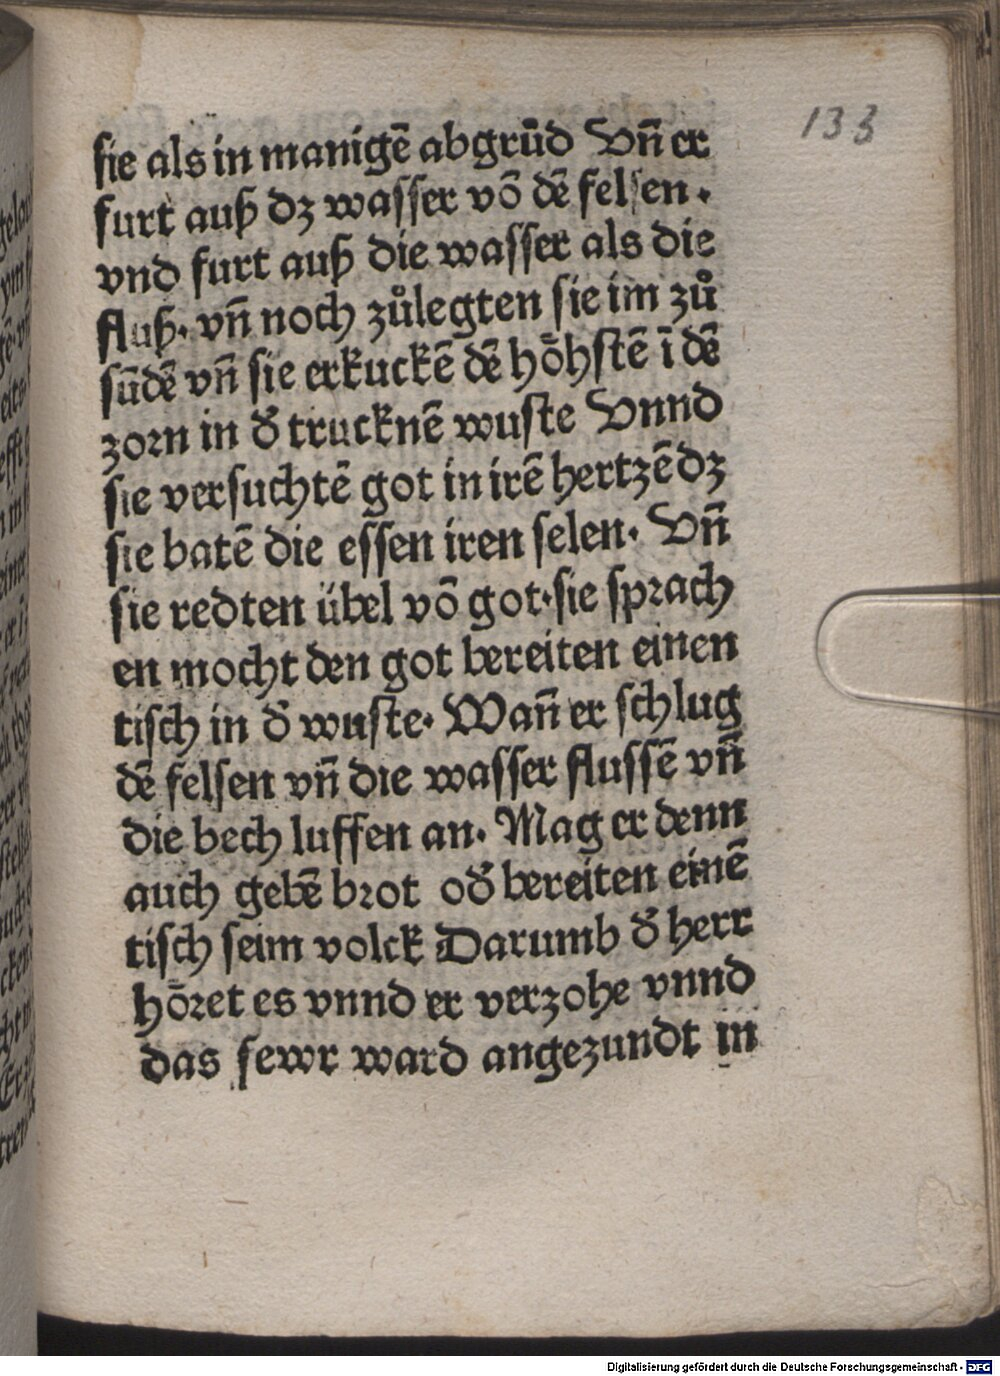 133
sie als in manigē abgrūd Vn̄ er
furt auß dz wasser vō dē felsen.
vnd furt auß die wasser als die
fluß. vn̄ noch zůlegten sie im zů
sūdē vn̄ sie erkuckē dē hȫhstē ī dē
zorn in d̄ trucknē wuste Vnnd
sie versuchtē got in irē hertzē dz
sie batē die essen iren selen. Vn̄
sie redten übel vō got. sie sprach
en mocht den got bereiten einen
tisch in d̄ wuste. Wan̄ er schlug
dē felsen vn̄ die wasser flussē vn̄
die bech luffen an. Mag er denn
auch gebē brot od̄ bereiten einē
tisch seim volck Darumb d̄ herr
hōret es vnnd er verzohe vnnd
das fewr ward angezundt in
Digitalisierung gefördert durch die Deutsche Forschungsgemeinschaft - DFG